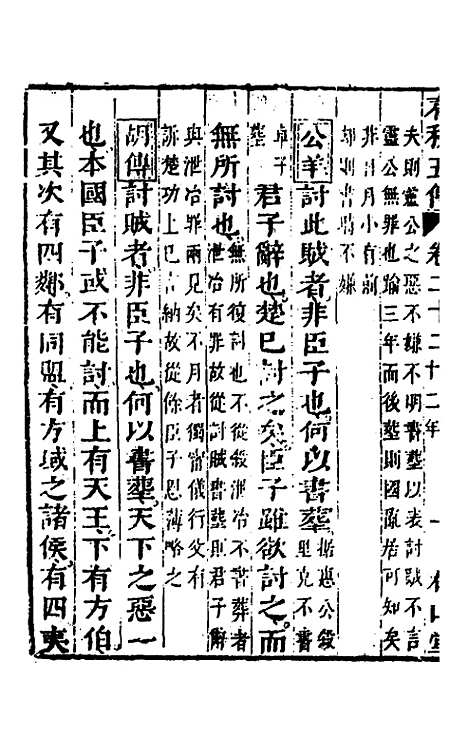 春秋五傳 卷二十二十二年 一
夫則靈公之惡不嫌不明書葬以表討賊不言
靈公無罪也踰三年而後葬則國亂居可知矣
非日月小有前
却則書時不嫌
公羊 討此賊者非臣子也何以書葬 據惠公殺 里克不書
卓子 葬 君子辭也楚已討之矣臣子雖欲討之而
無所討也 無所復討也不從殺泄冶不書葬者 泄冶有罪故從討賊書葬則君子辭
與泄冶罪兩見矣不月者獨甯儀行父有
訴楚功上已言納故從餘臣子恩薄略之
胡傳 討賊者非臣子也何以書葬天下之惡一
也本國臣子或不能討而上有天王下有方伯
又其次有四鄰有同盟有方域之諸侯有四夷